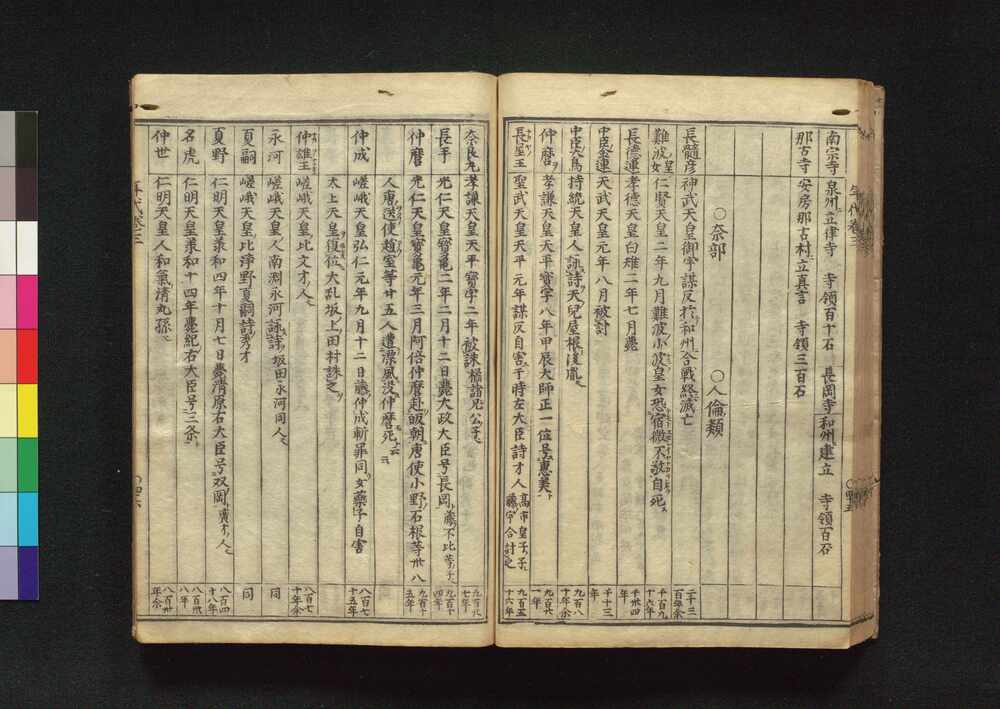 南宗寺 泉州立律寺 寺領百十石 長岡寺和州建立 寺領百石
那古寺 安房那古村ニ立真言 寺領三百石
○奈部 ○人倫類
長髄彦 神武天皇御宇謀反於和州合戦終滅亡 二千三百年余
難波皇女 仁賢天皇二年九月難波小波皇女恐宿徴不敬自死 千百九十六年
長徳連 孝徳天皇白雉二年七月薨 千卅四年
中臣金連 天武天皇元年八月被討 千十三年
中臣大島 持統天皇人詠詩天兒屋根後胤 九百八十年余
仲麿 孝謙天皇天平寶字八年甲辰大師正一位号惠美 九百六一年
長屋王 聖武天皇天平元年謀反自害于時左大臣詩才人高市皇子子藤宇合討之 九百五十六年
奈良丸 孝謙天皇天平寶字二年被誅橘諸兄公子 七年
長手 光仁天皇寶亀二年二月十二日薨大政大臣号長岡 九百十四年
仲麿 光仁天皇寶亀元年三月阿倍仲麿赴皈朝唐使小野石根等卅八 九百十五年
人唐送使趙室等廿五人遭漂風没仲麿死云云
仲成 嵯峨天皇弘仁元年九月十二日藤仲成斬罪同女藥子自害 八百七十五年
太上天皇復位大乱坂上田村誅之
仲雄王 嵯峨天皇比文才人 八百七十年余
永河 嵯峨天皇人南淵永河詠詩坂田永河同人 同
夏嗣 嵯峨天皇比浄野夏嗣詩秀才 同
夏野 仁明天皇承和四年十月七日薨清原右大臣号双岡賣才人 八百四十八年
名虎 仁明天皇承和十四年薨紀右大臣号三条 八百卅八年
仲世 仁明天皇人和氣清丸孫 八百卅年余